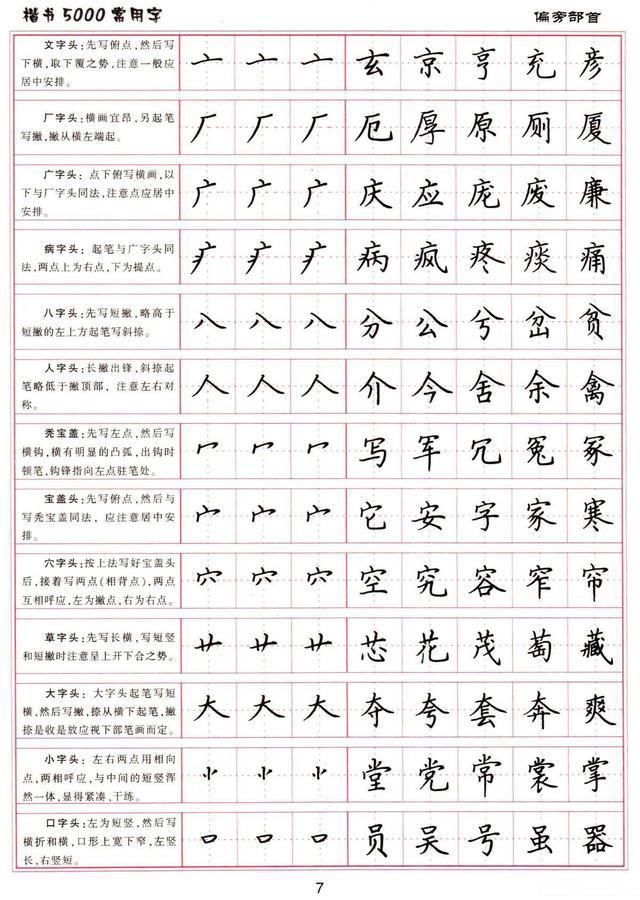 楷书5000常用字
偏旁部首
文字头:先写俯点,然后写
下横,取下覆之势,注意一般应
居中安排。
亠 亠 亠 玄 京 亨 充 彦
厂字头:横画宜昂,另起笔
写撇,撇从横左端起。
厂 厂 厂 厄 厚 原 厕 厦
广字头: 点下俯写横画,以
下与厂字头同法,注意点应居中
安排。
广 广 广 庆 应 庞 废 廉
病字头: 起笔与广字头同
法,两点上为右点,下为提点。
疒 疒 疒 病 疯 疼 痰 痛
八字头:先写短撇,略高于
短撇的左上方起笔写斜捺。
八 八 八 分 公 兮 岔 贫
人字头:长撇出锋,斜捺起
笔略低于撇顶部, 注意左右对
称。
人 人 人 介 今 舍 余 禽
秃宝盖:先写左点,然后写
横钩,横有明显的凸弧,出钩时
顿笔,钩锋指向左点驻笔处。
冖 冖 冖 写 军 冗 冤 冢
宝盖头:先写俯点,然后与
写秃宝盖同法, 应注意居中安
排。
宀 宀 宀 它 安 字 家 寒
穴字头:按上法写好宝盖头
后,接着写两点(相背点),两点
互相呼应,左为撇点,右为右点。
穴 穴 穴 空 究 容 窄 帘
草字头:先写长横,写短竖
和短撇时注意呈上开下合之势。
艹 艹 艹 芯 花 茂 萄 藏
大字头: 大字头起笔写短
横,然后写撇,捺从横下起笔,撇
捺是收是放应视下部笔画而定。
大 大 大 夺 夸 套 奔 爽
小字头: 左右两点用相向
点,两相呼应,与中间的短竖浑
然一体,显得紧凑、干练。
⺌ ⺌ ⺌ 堂 党 常 裳 掌
口字头:左为短竖,然后写
横折和横,口形上宽下窄,左竖
长,右竖短。
口 口 口 员 吴 号 虽 器
7